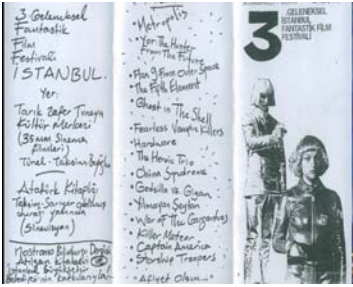 3. Geleneksel
Fantastik
Film
Festivali
İSTANBUL.
Yer:
Tarık Zafer Tunaya
Kültür Merkezi
(35mm Sinema
filmleri)
Tünel - Taksim-Beyoğlu
Atatürk Kitaplığı
Taksim-Sarıyer
yanında
Nostromo Bilimkurgu Dergisi
Atılgan Kitabevi
İstanbul Büyükşehir
Belediyesi'nin katkılarıyla
• Metropolis
• Yor The Hunter
From The Future
• Plan 9 From Outer Space
• The Fifth Element
• Ghost in The Shell
• Fearless Vampire Killers
• Hardware
• The Heroic Trio
• China Syndrome
• Godzilla vs. Gigan
• Yılmayan Şeytan
• War of The Gargantuas
• Killer Meteor
• Captain America
• Starship Troopers
• Afiyet Olsun...
3. GELENEKSEL
İSTANBUL
FANTASTİK FİLM
FESTİVALİ